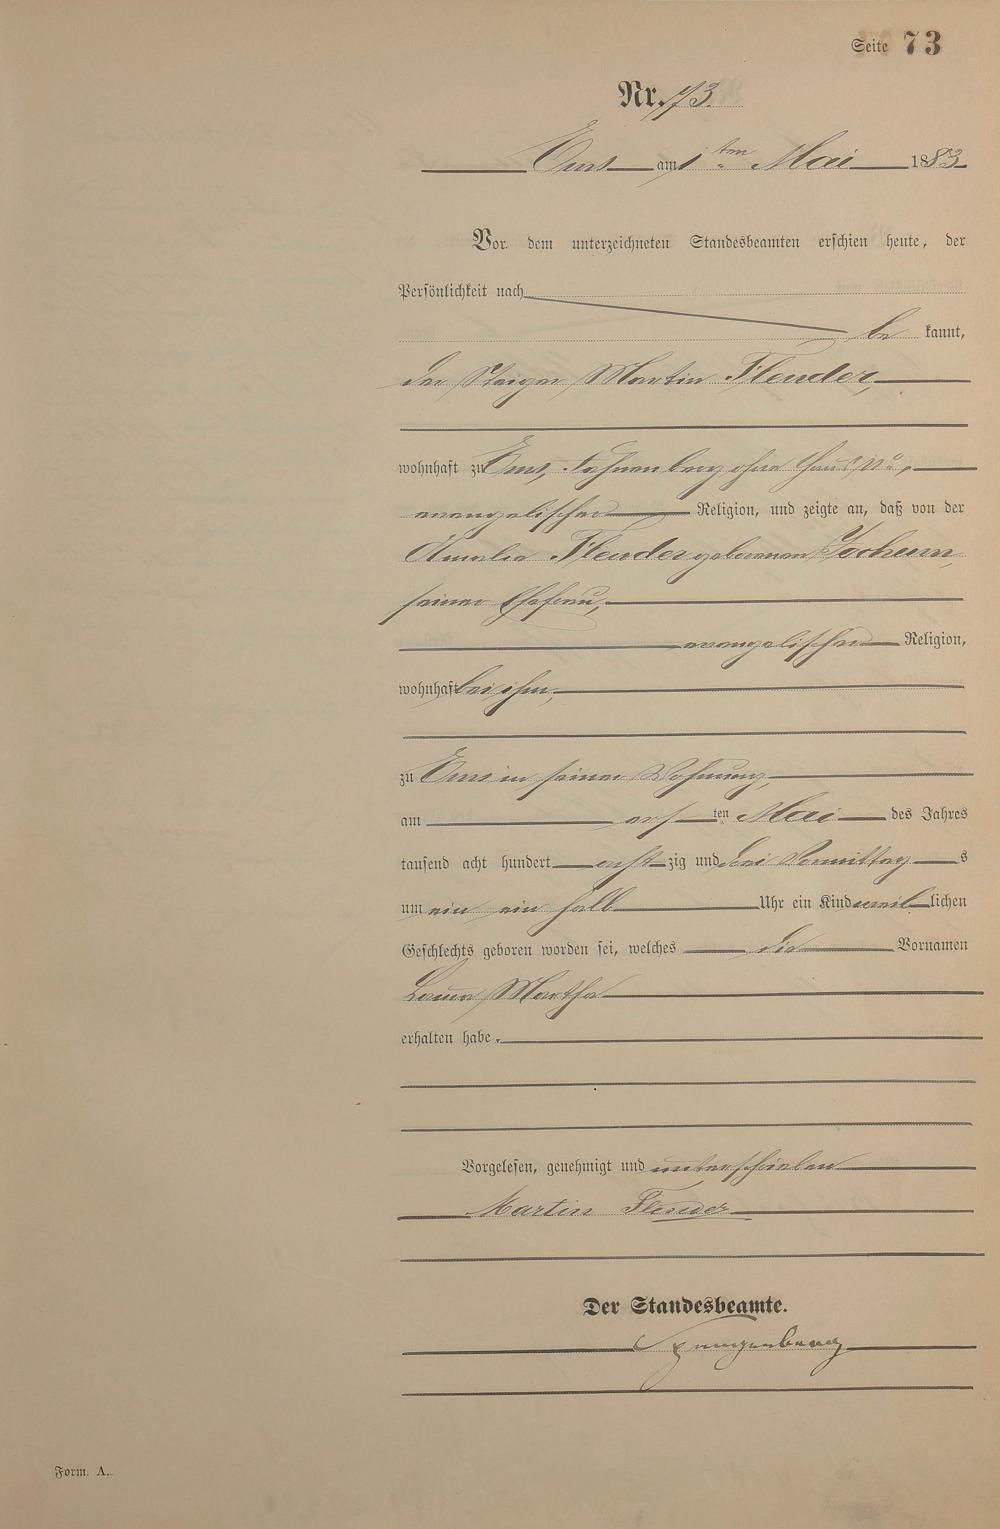 Seite 73
Nr. 73.
Ems am 1ten Mai 1883.
Vor dem unterzeichneten Standesbeamten erschien heute, der
Persönlichkeit nach
be kannt,
der Steiger Martin Flender,
wohnhaft zu Ems, Fahnenberg ohne Haus No,
evangelischer Religion, und zeigte an, daß von der
Amalie Flender geborenen Jochum,
seiner Ehefrau,
evangelischer Religion,
wohnhaft bei ihm,
zu Ems in seiner Wohnung,
am ersten Mai des Jahres
tausend acht hundert achtzig und drei Vormittags
um ein ein halb Uhr ein Kind weiblichen
Geschlechts geboren worden sei, welches die Vornamen
Martha
erhalten habe.
Vorgelesen, genehmigt und unterschrieben
Martin Flender
Der Standesbeamte.
Form. A.